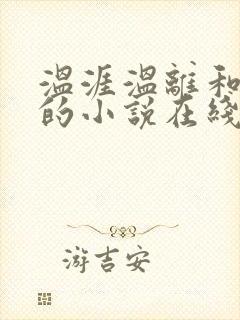 温涯温離和
的小说在綫
游吉安